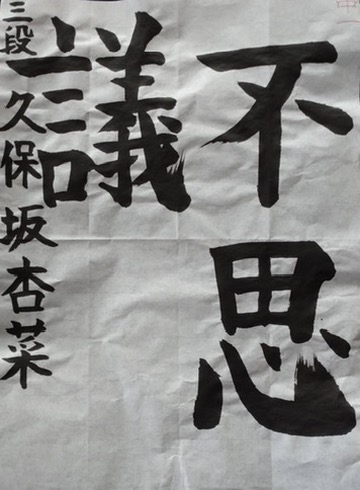 不思
議
三段 久保坂杏菜